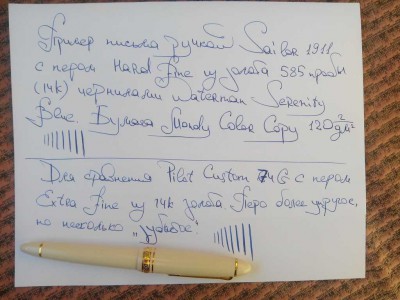 Пример письма ручкой Sailor 1911
с пером Hard Fine из золота 585 пробы
(14k) чернилами Waterman Serenity
Blue. Бумага Mondy Color Copy 120 g/м²
Для сравнения Pilot Custom 74 с пером
Extra Fine из 14k золота. Перо более упругое,
но несколько "зубастое".